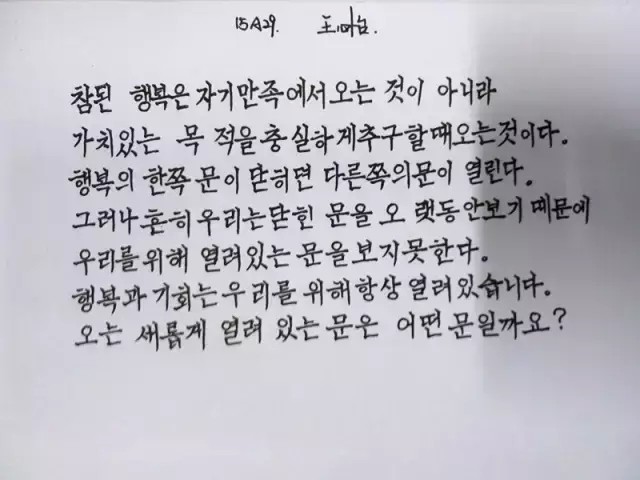 15.4.29.
참된 행복은 자기만족에서오는 것이 아니라
가치있는 목 적을충실하게추구할때오는것이다.
행복의 한쪽 문이 닫히면 다른쪽의문이 열린다.
그러나흔히우리는닫힌 문을 오 랫동안보기때문에
우리를위해 열려있는 문을보지못한다.
행복과 기회는우리를위해항상열려있습니다.
오는 새롭게 열려 있는문은 어떤문일까요?